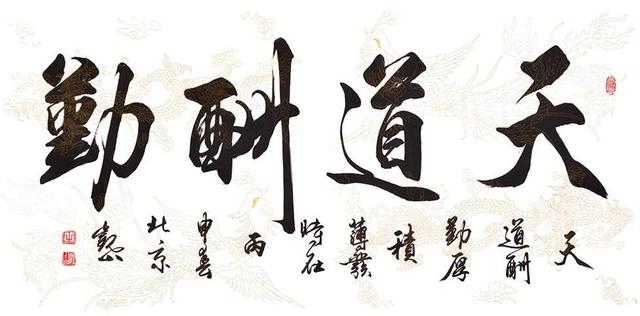 天道酬勤
天
道酬
勤厚
積
薄發
時在
丙
申春
北京